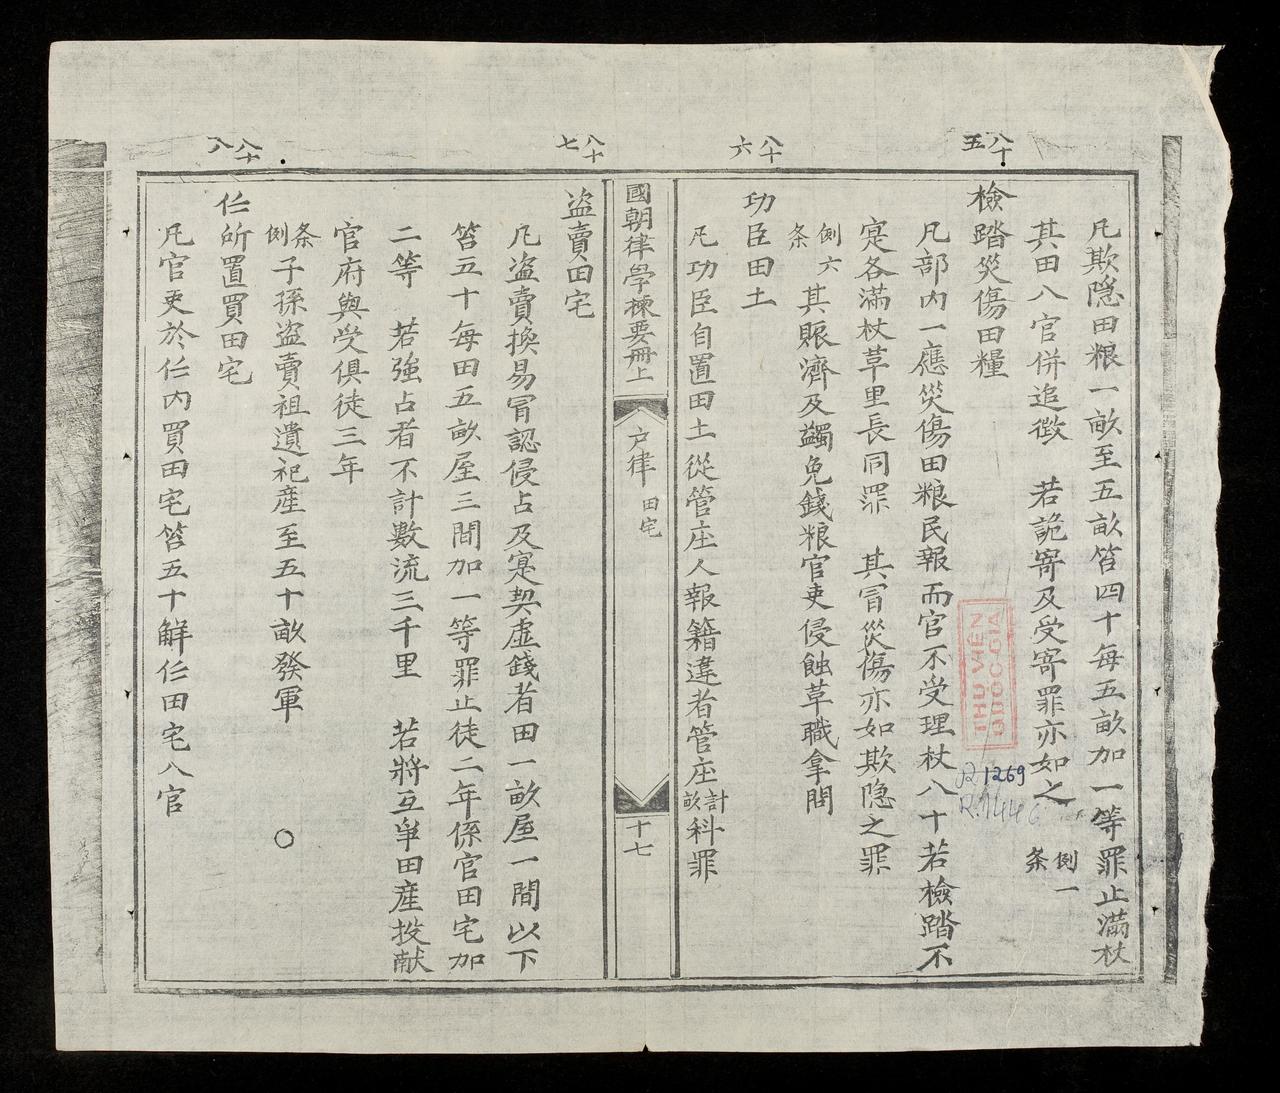 八十五
凡欺隐田粮一畝至五畝笞四十每五畝加一等罪止滿杖
其田入官併追徵　若詭寄及受寄罪亦如之　条例一
檢踏災傷田糧
凡部内一應災傷田粮民報而官不受理杖八十若檢踏不
寔各滿杖草里長同罪　其冒災傷亦如欺隐之罪
条例六　其賑濟及蠲免錢粮官吏侵蝕草職拿問
八十六
功臣田土
凡功臣自置田土從管庄人報籍違者管庄計畝科罪
國朝律學揀要冊上
户律　田宅
十七
八十七
盗賣田宅
凡盗賣換易冒認侵占及寔契虛錢者田一畝屋一間以下
笞五十每田五畝屋三間加一等罪止徒二年係官田宅加
二等　若強占者不計數流三千里　若將互爭田産投献
官府與受俱徒三年
条例　子孫盗賣祖遺祀産至五十畝發軍　○
八十八
任所置買田宅
凡官吏於任内買田宅笞五十觧任田宅入官
THƯ VIỆN
QUỐC GIA
R1269
R.1446